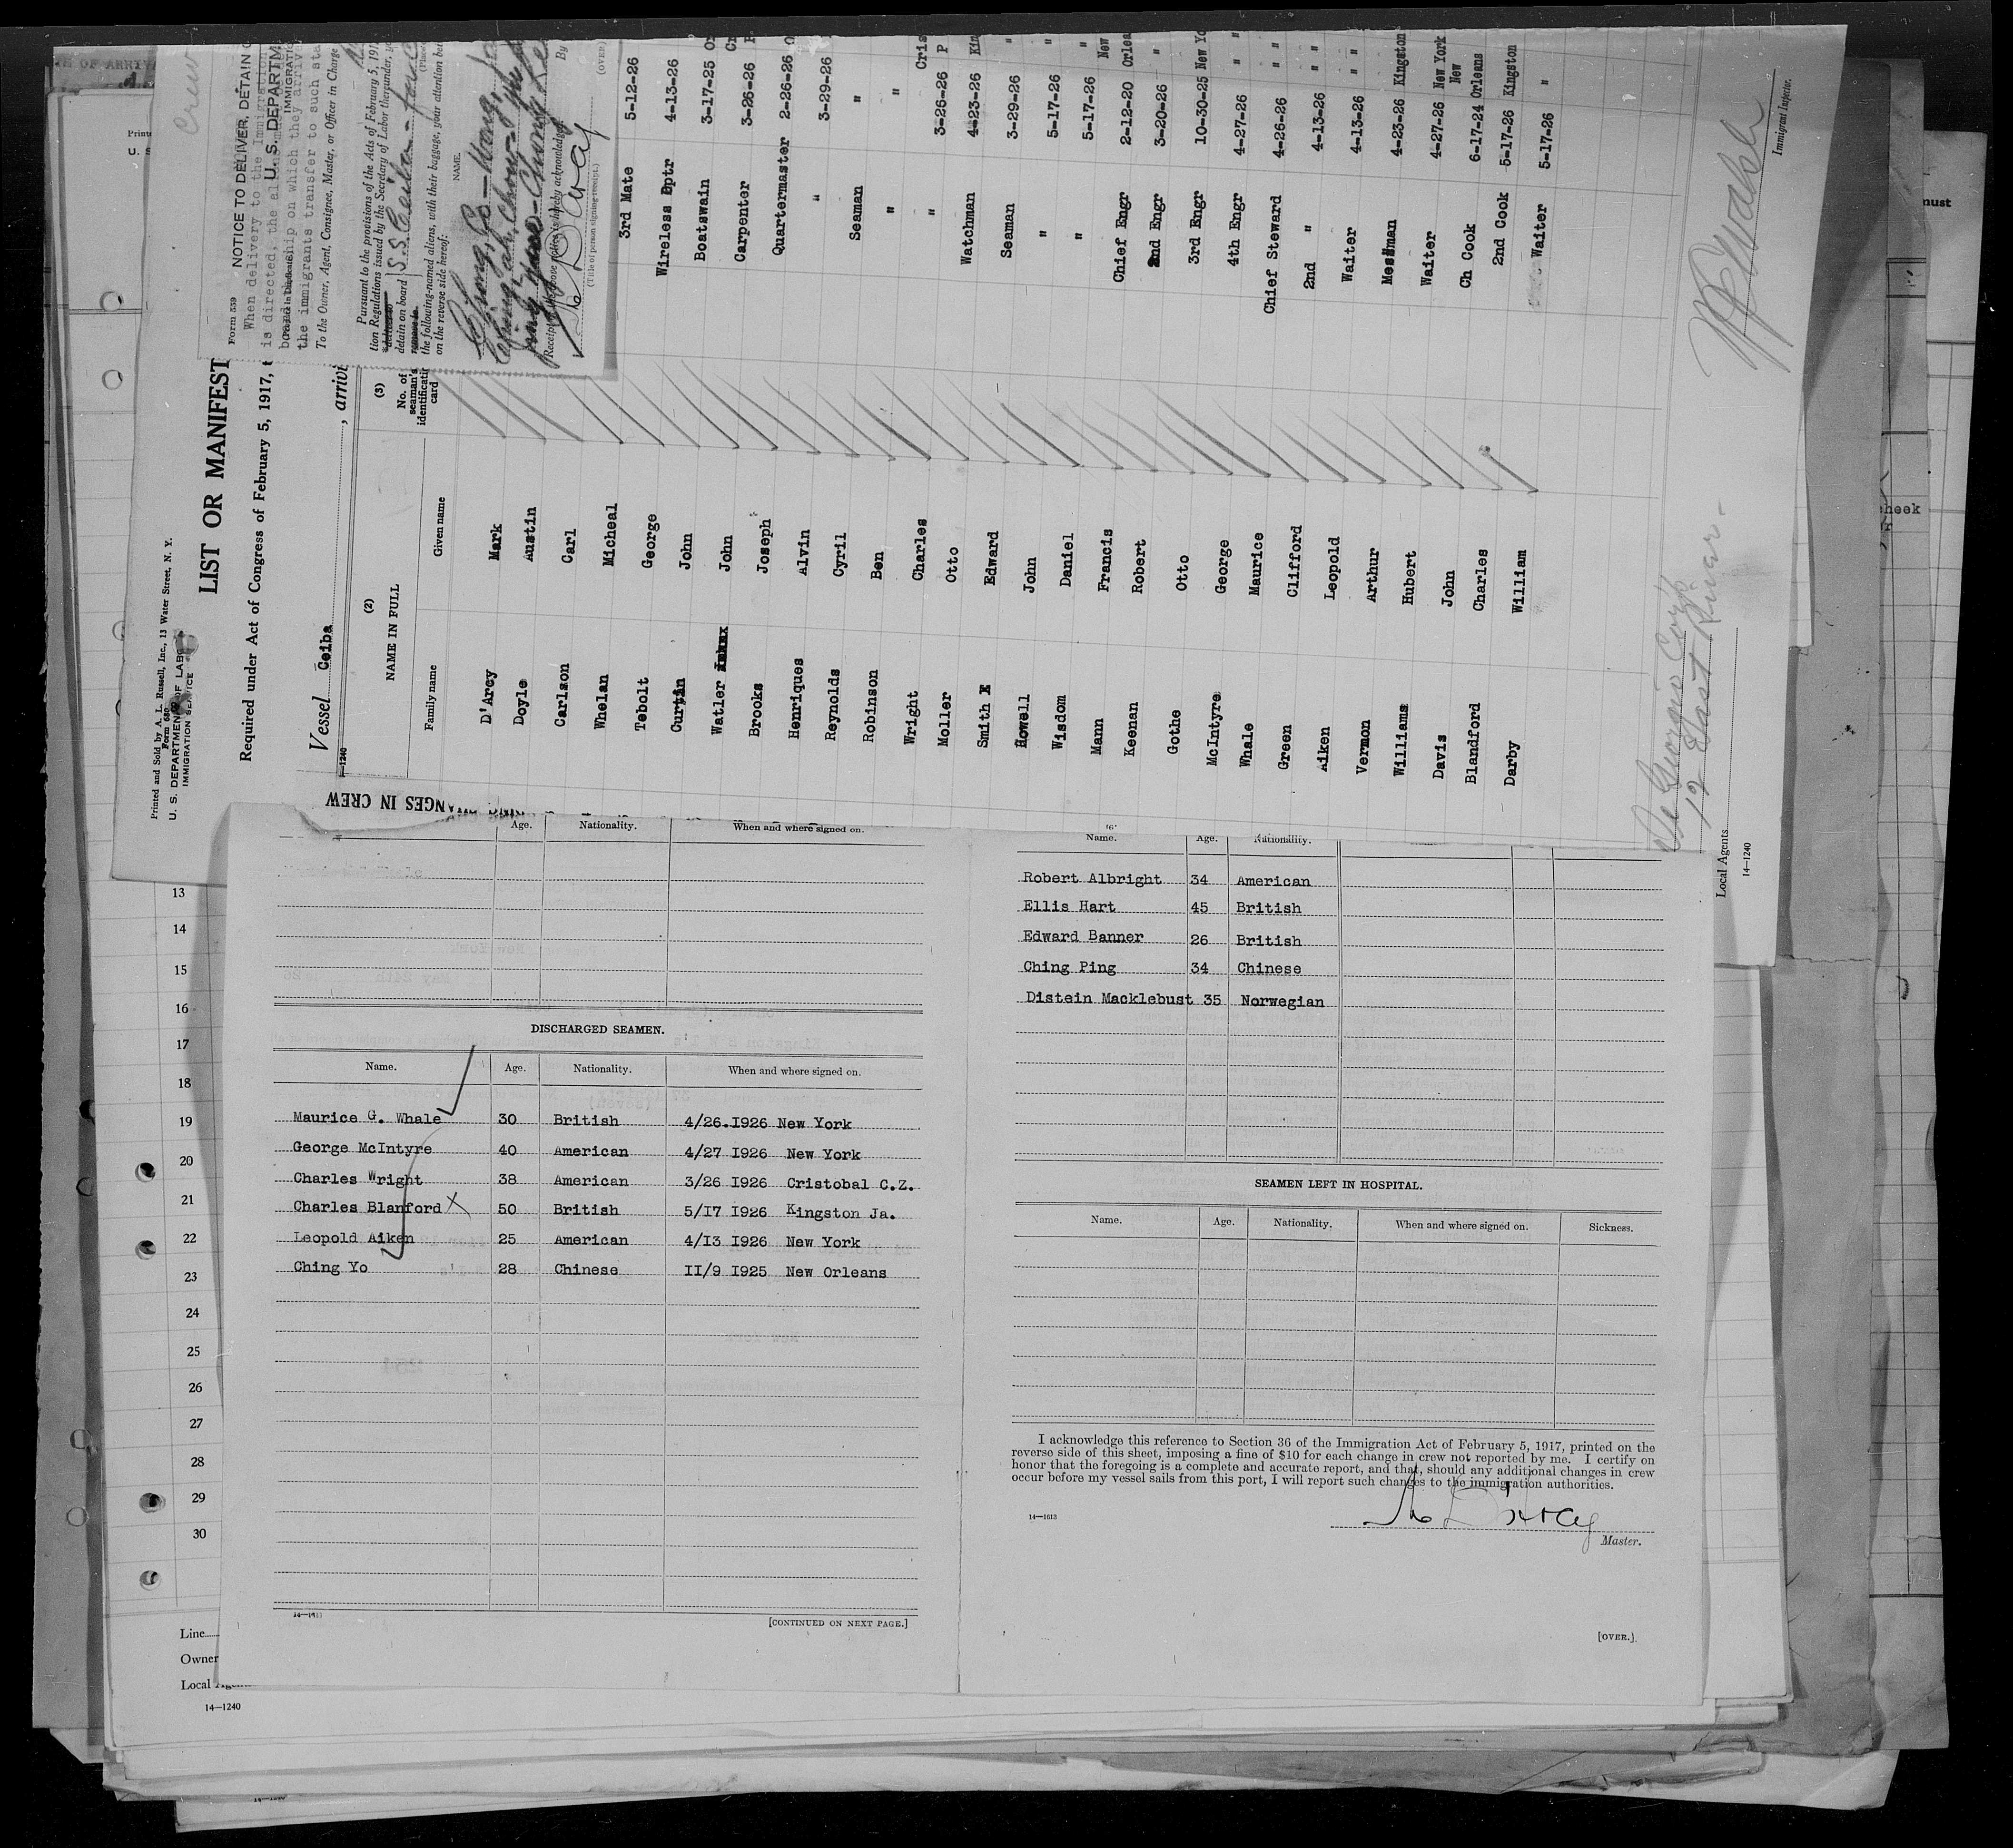 Printed and Sold by A. L. Russell, Inc., 13 Water Street, N. Y.
Form 680
U. S. DEPARTMENT OF LABOR
IMMIGRATION SERVICE
LIST OR MANIFEST
Required under Act of Congress of February 5, 1917, t
Vessel Ceiba , arrivi
14—1240
(2) (3)
NAME IN FULL No. of seaman's identificati card
Family name Given name
D'Arcy Mark
Doyle Austin
Carlson Carl
Whelan Micheal
Tebolt George 3rd Mate 5-12-26
Curtin John Wireless Optr 4-13-26
Watler John Boatswain 3-17-25
Brooks Joseph Carpenter 3-26-26
Henriques Alvin Quartermaster 2-26-26
Reynolds Cyril " 3-29-26
Robinson Ben Seaman "
Wright Charles " " Cris
Moller Otto " 3-26-26 P
Smith E Edward Watchman 4-23-26 Kin
Howell John Seaman 3-29-26 "
Wisdom Daniel " 5-17-26 "
Mann Francis " 5-17-26 "
Keenan Robert Chief Engr 2-12-20 New Orlea
Gothe Otto 2nd Engr 3-20-26 "
McIntyre George 3rd Engr 10-30-25 New Yo
Whale Maurice 4th Engr 4-27-26 "
Green Clifford Chief Steward 4-26-26 "
Aiken Leopold 2nd " 4-13-26 "
Vermon Arthur Waiter 4-13-26 "
Williams Hubert Messman 4-23-26 Kingston
Davis John Waiter 4-27-26 New York
Blandford Charles Ch Cook 6-17-24 New Orleans
Darby William 2nd Cook 5-17-26 Kingston
Waiter 5-17-26 "
Immigrant Inspector.
De Giorgio Corp
12 East River-
Local Agents
14—1240
Crew
Form 559
NOTICE TO DELIVER, DETAIN O
When delivery to the Immigration
is directed, the al
U. S. DEPARTM
IMMIGRATIO
board the ship on which they arrive
the immigrants transfer to such sta
To the Owner, Agent, Consignee, Master, or Officer in Charge
Pursuant to the provisions of the Acts of February 5, 1917
tion Regulations issued by the Secretary of Labor thereunder, yo
detain on board S.S. Ceiba
the following-named aliens, with their baggage, your attention bei
on the reverse side hereof:
NAME.
Receipt of the above notice is hereby acknowledged:
By
(Title of person signing receipt.)
(OVER)
NGES IN CREW
Age. Nationality. When and where signed on.
DISCHARGED SEAMEN.
Name. Age. Nationality. When and where signed on.
Maurice G. Whale 30 British 4/26.I926 New York
George McIntyre 40 American 4/27 I926 New York
Charles Wright 38 American 3/26 I926 Cristobal C.Z.
Charles Blanford X 50 British 5/I7 I926 Kingston Ja.
Leopold Aiken 25 American 4/I3 I926 New York
Ching Yo 28 Chinese II/9 I925 New Orleans
[CONTINUED ON NEXT PAGE.]
Name. Age. Nationality.
Robert Albright 34 American
Ellis Hart 45 British
Edward Banner 26 British
Ching Ping 34 Chinese
Distein Macklebust 35 Norwegian
SEAMEN LEFT IN HOSPITAL.
Name. Age. Nationality. When and where signed on. Sickness.
I acknowledge this reference to Section 36 of the Immigration Act of February 5, 1917, printed on the
reverse side of this sheet, imposing a fine of $10 for each change in crew not reported by me. I certify on
honor that the foregoing is a complete and accurate report, and that, should any additional changes in crew
occur before my vessel sails from this port, I will report such changes to the immigration authorities.
M D'Arcy
14—1613
Master.
[OVER.]
13
14
15
16
17
18
19
20
21
22
23
24
25
26
27
28
29
30
Line
Owner
Local
14—1240